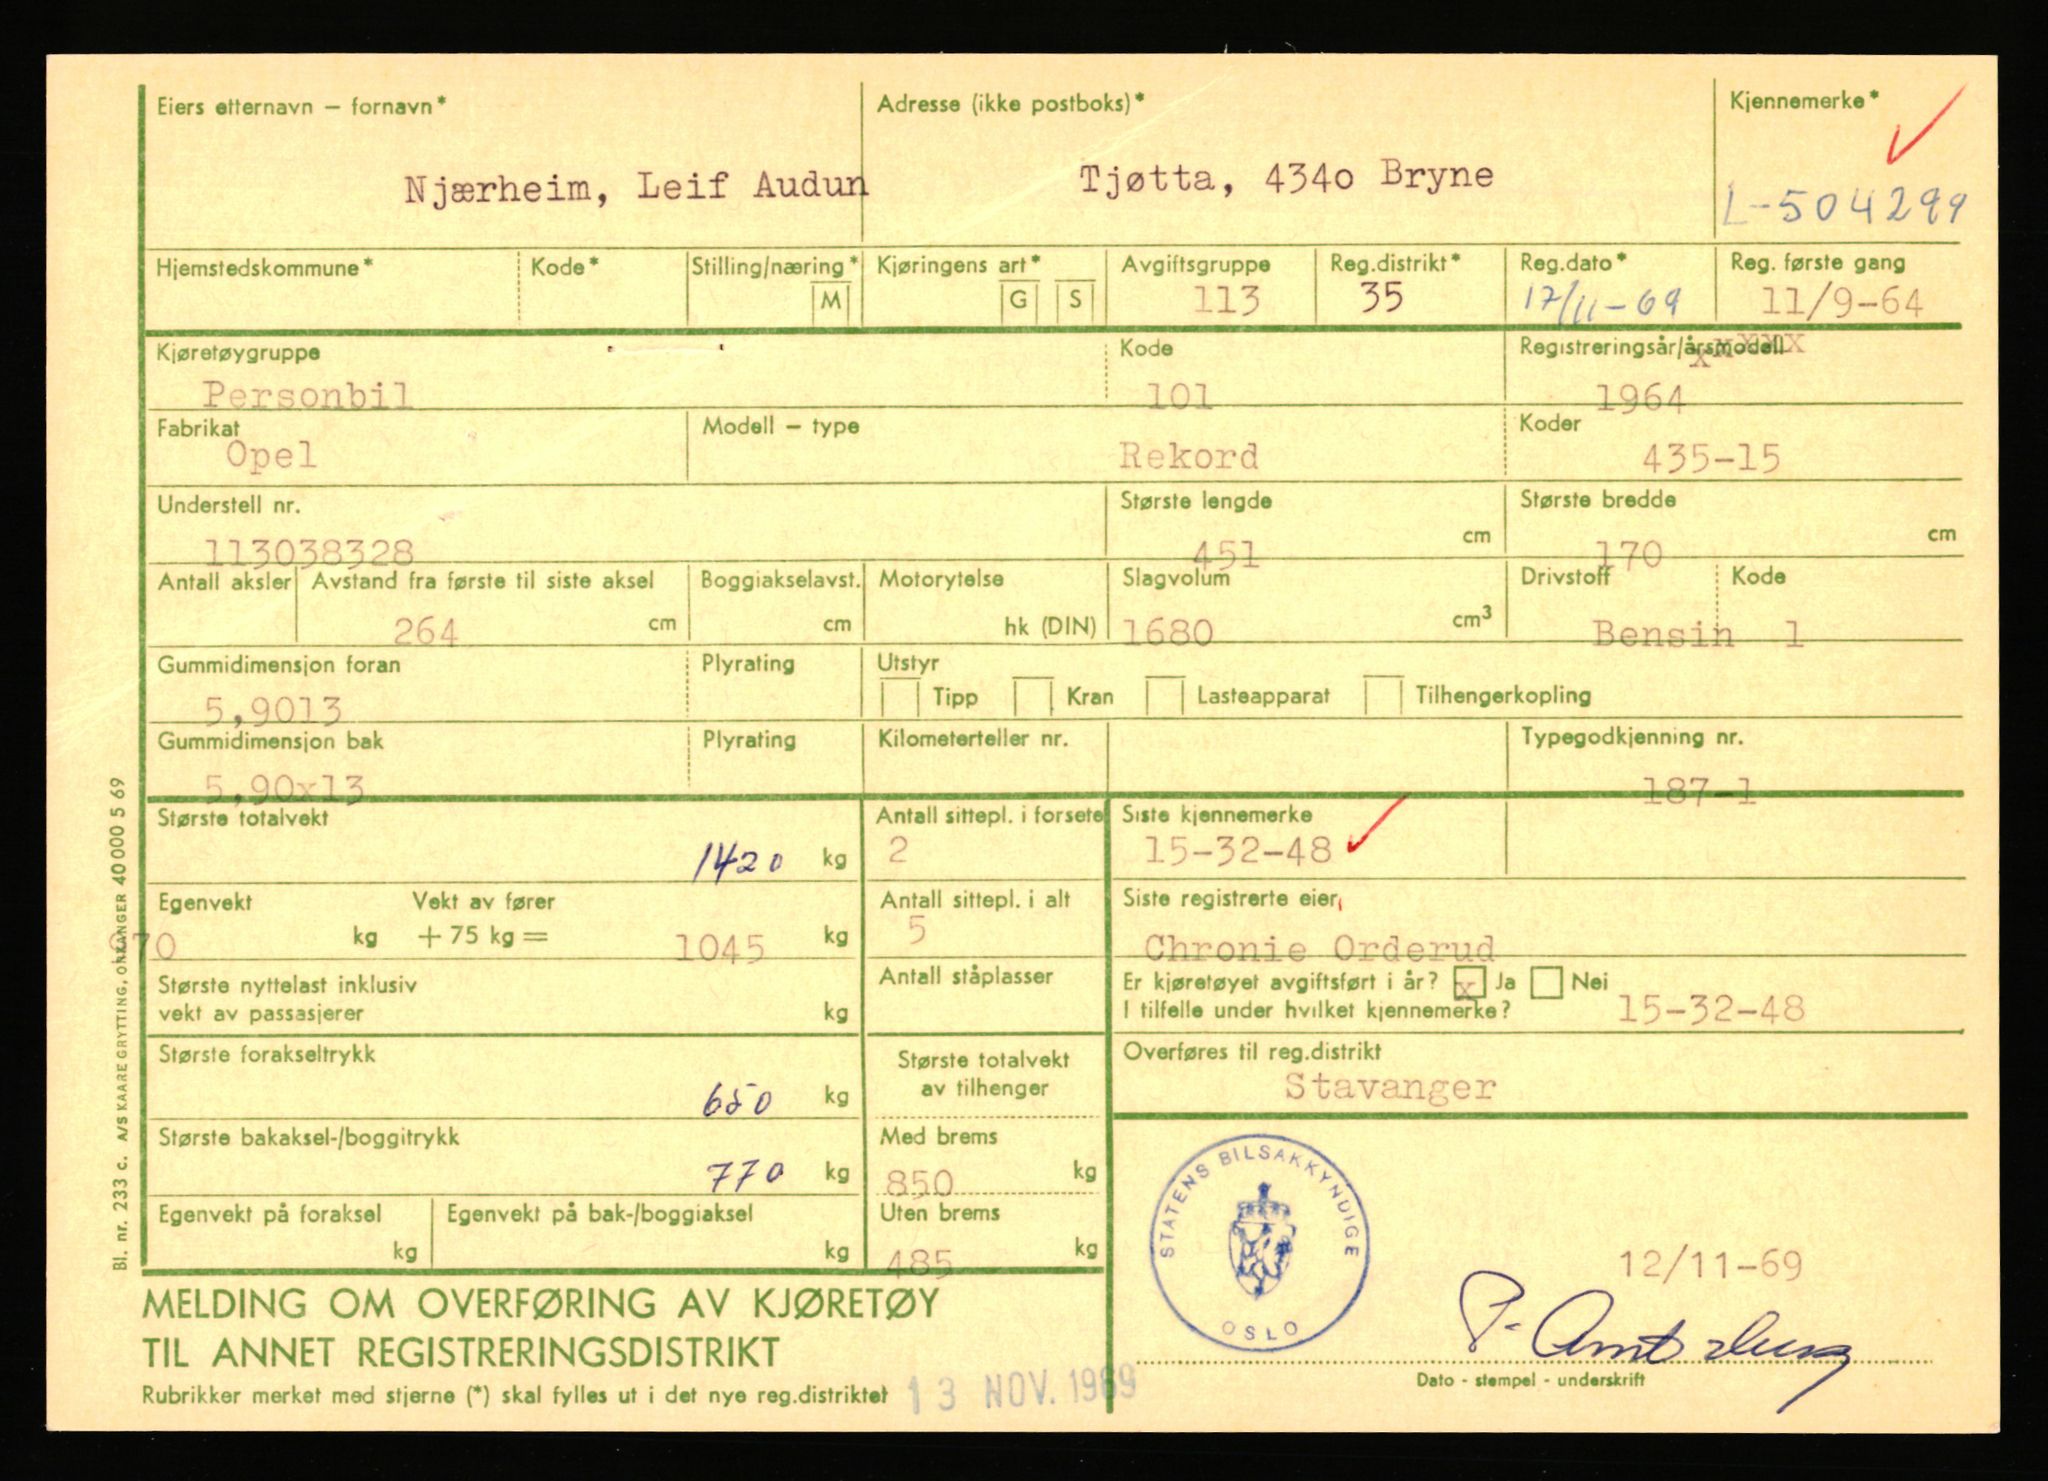 Eiers etternavn – fornavn*
Njærheim, Leif Audun
Adresse (ikke postboks)*
Tjøtta, 434o Bryne
Kjennemerke*
L-504299
Hjemstedskommune*
Kode*
Stilling/næring*
M
Kjøringens art*
G S
Avgiftsgruppe
113
Reg.distrikt*
35
Reg.dato*
17/11-69
Reg. første gang
11/9-64
Kjøretøygruppe
Personbil
Kode
101
Registreringsår/årsmodell
1964
Fabrikat
Opel
Modell – type
Rekord
Koder
435-15
Understell nr.
113038328
Største lengde
451 cm
Største bredde
170 cm
Antall aksler
Avstand fra første til siste aksel
264 cm
Boggiakselavst.
cm
Motorytelse
hk (DIN)
Slagvolum
1680 cm3
Drivstoff
Bensin
Kode
1
Gummidimensjon foran
5,9013
Plyrating
Utstyr
Tipp Kran Lasteapparat Tilhengerkopling
Gummidimensjon bak
5,90x13
Plyrating
Kilometerteller nr.
Typegodkjenning nr.
187-1
Største totalvekt
1420 kg
Antall sittepl. i forsete
2
Siste kjennemerke
15-32-48
Egenvekt
970 kg
Vekt av fører
+ 75 kg = 1045 kg
Antall sittepl. i alt
5
Siste registrerte eier
Chronie Orderud
Største nyttelast inklusiv
vekt av passasjerer
kg
Antall ståplasser
Er kjøretøyet avgiftsført i år? x Ja Nei
I tilfelle under hvilket kjennemerke? 15-32-48
Største forakseltrykk
650 kg
Største totalvekt
av tilhenger
Overføres til reg.distrikt
Stavanger
Største bakaksel-/boggitrykk
770 kg
Med brems
850 kg
Egenvekt på foraksel
kg
Egenvekt på bak-/boggiaksel
kg
Uten brems
485 kg
STATENS BILSAKKYNDIGE
OSLO
12/11-69
Dato - stempel - underskrift
MELDING OM OVERFØRING AV KJØRETØY
TIL ANNET REGISTRERINGSDISTRIKT
Rubrikker merket med stjerne (*) skal fylles ut i det nye reg.distriktet
13 NOV. 1969
Bl. nr. 233 c. A/S KAARE GRYTTING, ORKANGER 40 000 5 69